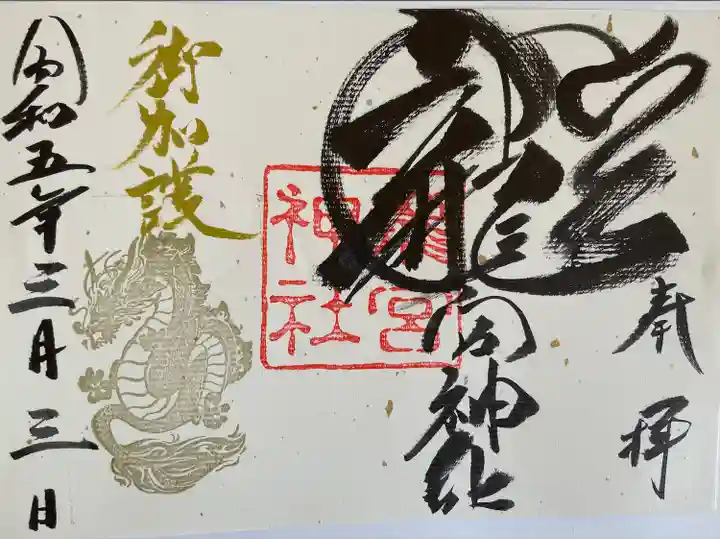 奉拝
龍
龍宮神社
龍宮
神社
御加護
令和五年三月三日